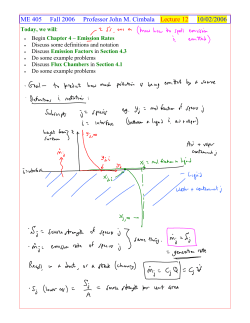 ME 405 Fall 2006 Professor John M. Cimbala Lecture 12 10/02/2006
Today, we will:
Begin Chapter 4 – Emission Rates
Discuss some definitions and notation
Discuss Emission Factors in Section 4.3
Do some example problems
Discuss Flux Chambers in Section 4.1
Do some example problems
Goal – to predict how much pollution is being emitted by a source
Definitions & notation:
Subscripts j = species
i = interface
eg. yj = mol fraction of species j
(between a liquid & air or vapor)
Air + vapor
contaminant j
i = interface
xj = mol fraction in liquid
Liquid
Sj = source strength of species j
ṁj = emission rate of species j
same thing. ṁj = Sj
= generation rate
Recall in a duct, or a stack (chimney) ṁj = cj Q
sj (lower case) = Sj / A = source strength per unit area